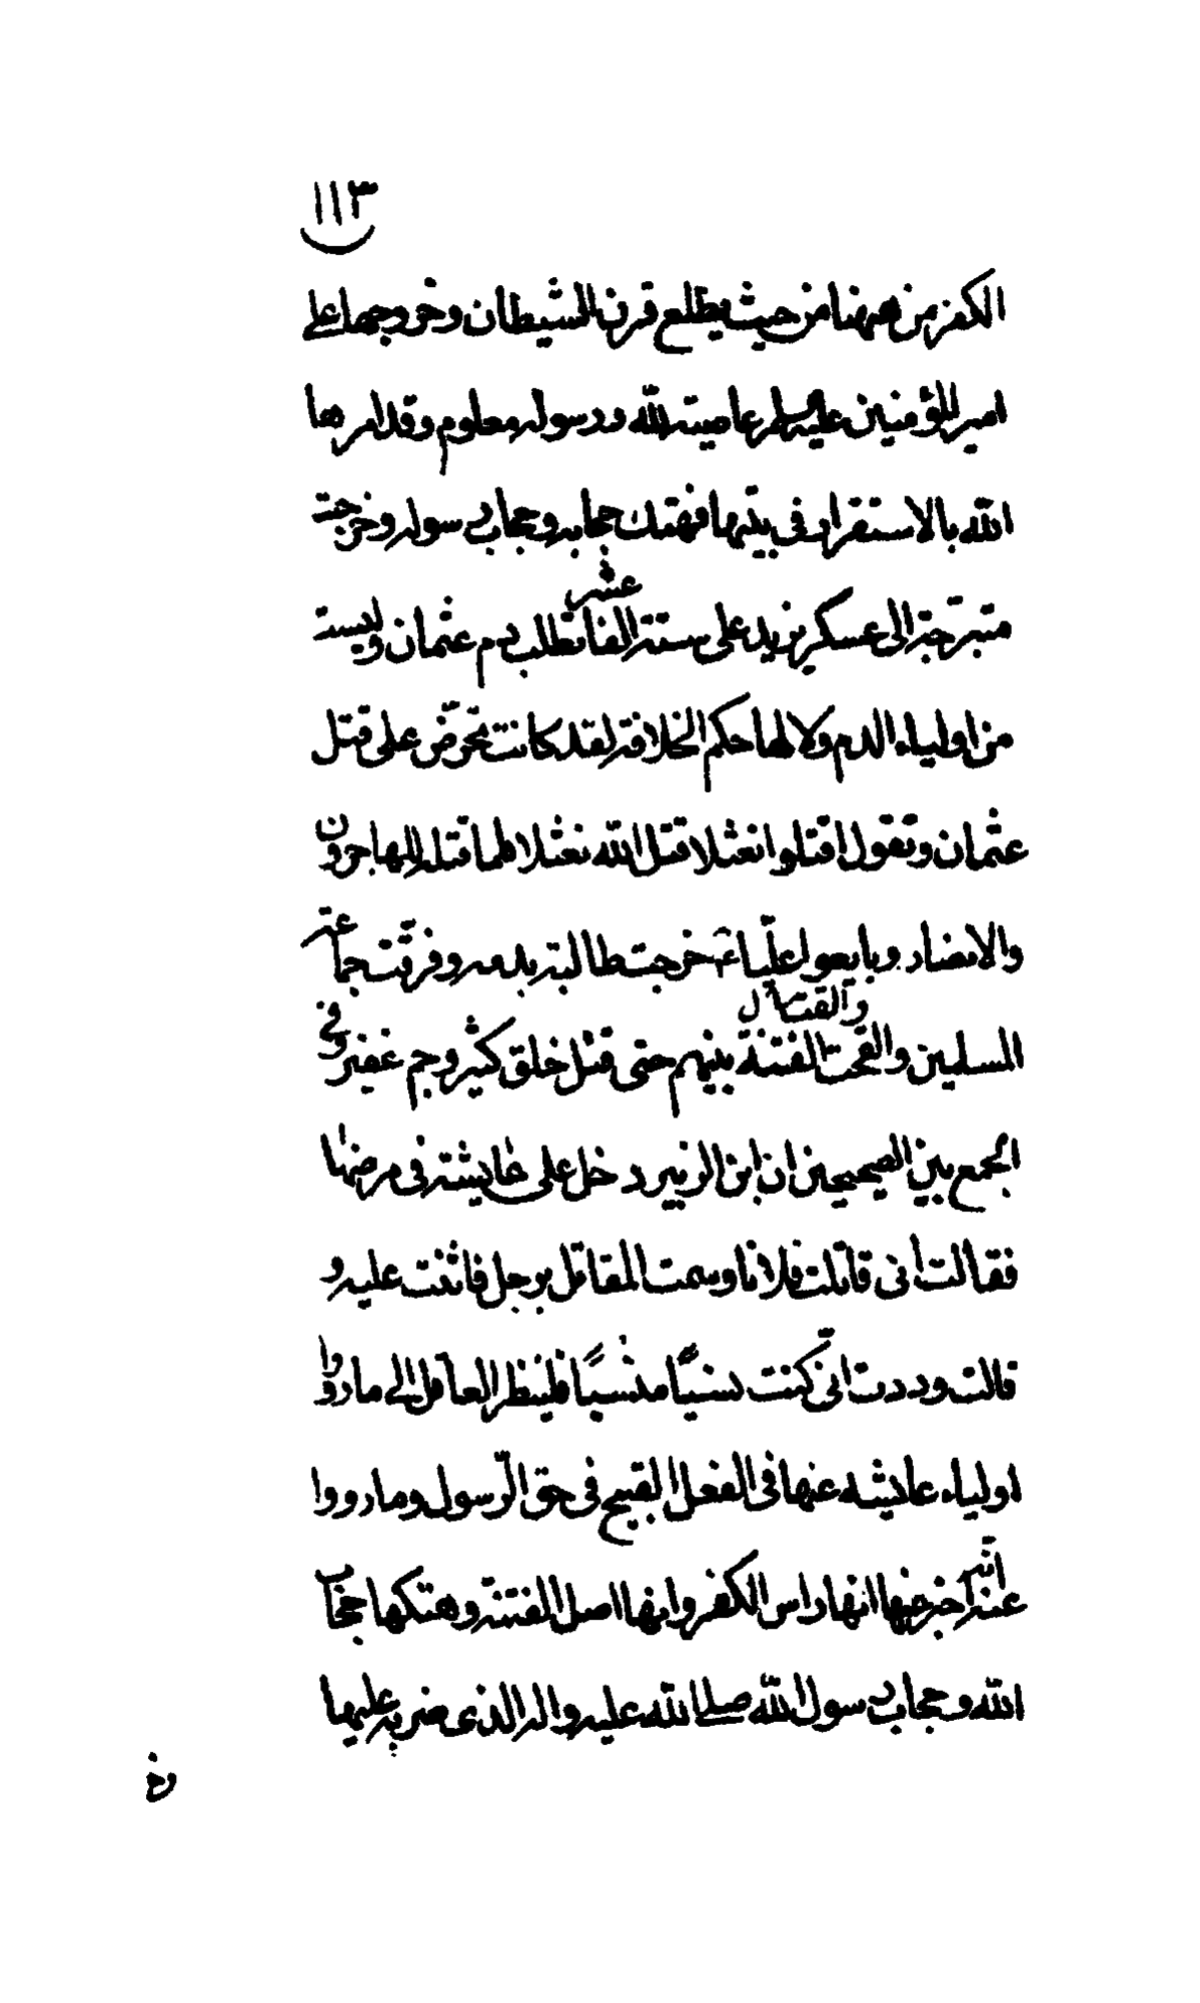 ١١٣
الكفر من ههنا من حيث يطلع قرن الشيطان وخروجها على
امير المؤمنين عليه السلم عاصية لله ورسوله معلوم وقد امرها
الله بالاستقرار في بيتها فهتكت حجابه وحجاب رسوله وخرجت
متبرّجة الى عسكر يزيد على ستة عشر الفا تطلب بدم عثمان وليست
من اولياء الدم ولا لها حكم الخلافة لقد كانت تحرّض على قتل
عثمان وتقول اقتلوا نعثلا قتل الله نعثلا فلما قتله المهاجرون
والانصار وبايعوا عليّاء خرجت طالبة بدمه وفرقت جماعة
المسلمين والقحت الفتنة والقتال بينهم حتى قتل خلق كثير وجم غفير وفي
الجمع بين الصحيحين ان ابن الزبير دخل على عايشة في مرضها
فقالت اني قاتلت فلانا وسمت المقاتل برجل فاثنت عليه و
قالت وددت انّي كنت نسيًا منسيًا فلينظر العاقل الى ما رووا
اولياء عايشه عنها في الفعل القبيح في حق الرّسول وما رووا
عنه انّه اخبر عنها انها راس الكفر وانها اصل الفتنة وهتكها حجاب
الله وحجاب رسول الله صلى الله عليه واله الذى ضربه عليها